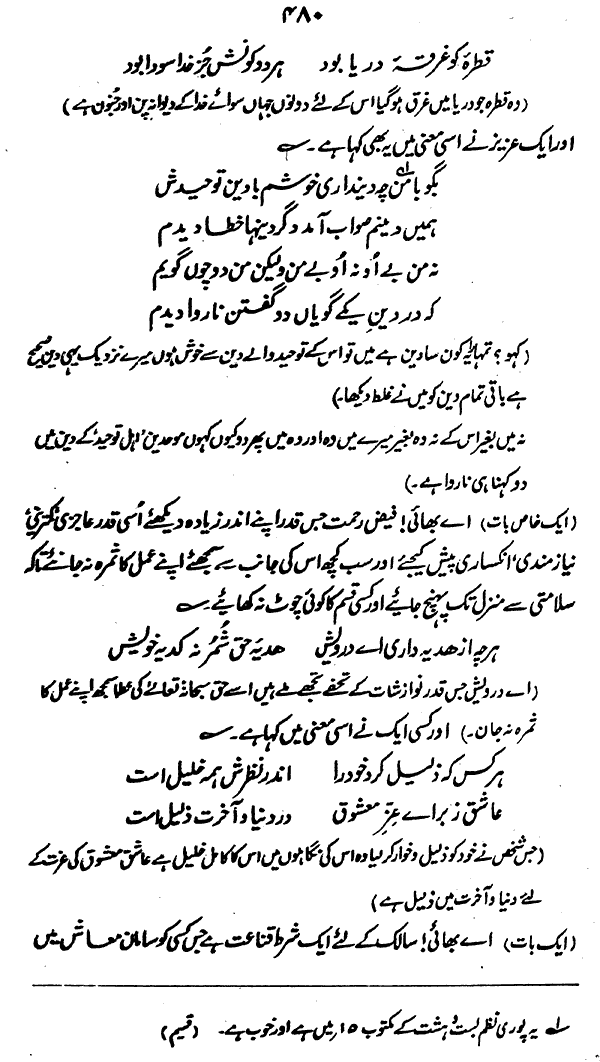 ۴۸۰
قطرۂ کو غرقۂ دریا بود ہر دو کونش جُز خدا سودا بود
(وہ قطرہ جو دریا میں غرق ہو گیا اس کے لئے دونوں جہاں سوائے خدا کے دیوانہ پن اور جنون ہے)
اور ایک عزیز نے اسی معنی میں یہ بھی کہا ہے۔ ؎
بگو بامن چہ دینداری خوشم بادین توحیدش
ہمیں دینم صواب آمد دگر دینہا خطا دیدم
نہ من بے اُو نہ اُو بے من ولیکن من دو چوں گویم
کہ در دینِ یکے گویاں دو گفتن ناروا دیدم
(کہو؟ تمہارا کون سا دین ہے میں تو اس کے توحید والے دین سے خوش ہوں میرے نزدیک یہی دین صحیح
ہے باقی تمام دین کو میں نے غلط دیکھا۔)
نہ میں بغیر اس کے نہ وہ بغیر میرے میں وہ اور وہ میں پھر دو کیوں کہوں موحدین، اہل توحید کے دین میں
دو کہنا ہی ناروا ہے۔)
(ایک خاص بات) اے بھائی! فیض رحمت جس قدر اپنے اندر زیادہ دیکھئے اُسی قدر عاجزی نگرنئی
نیازمندی، انکساری پیش کیجئے اور سب کچھ اس کی جانب سے سمجھئے اپنے عمل کا ثمرہ نہ جانئے تاکہ
سلامتی سے منزل تک پہنچ جائیے اور کسی قسم کا کوئی چوٹ نہ کھائیے۔ ؎
ہرچہ از ھدیہ داری اے درویش ھدیۂ حق شُمُر نہ کدیہ خویش
(اے درویش جس قدر نوازشات کے تحفے تجھے ملے ہیں اسے حق سبحانہٗ تعالےٰ کی عطا سمجھ اپنے عمل کا
ثمرہ نہ جان۔) اور کسی ایک نے اسی معنی میں کہا ہے۔ ؎
ہر کس کہ ذلیل کرد خود را اندر نظرش ہمہ خلیل است
عاشق ز برائے عزِّ معشوق در دنیا و آخرت ذلیل است
(جس شخص نے خود کو ذلیل و خوار کر لیا وہ اس کی نگاہوں میں اس کا کامل خلیل ہے عاشق معشوق کی عزت کے
لئے دنیا و آخرت میں ذلیل ہے)
(ایک بات) اے بھائی! سالک کے لئے ایک شرط قناعت ہے جس کسی کو سامان معاش میں
لے یہ پوری نظم بست و ہشت کے مکتوب ۱۵، میں ہے اور خوب ہے۔ (قسیم)